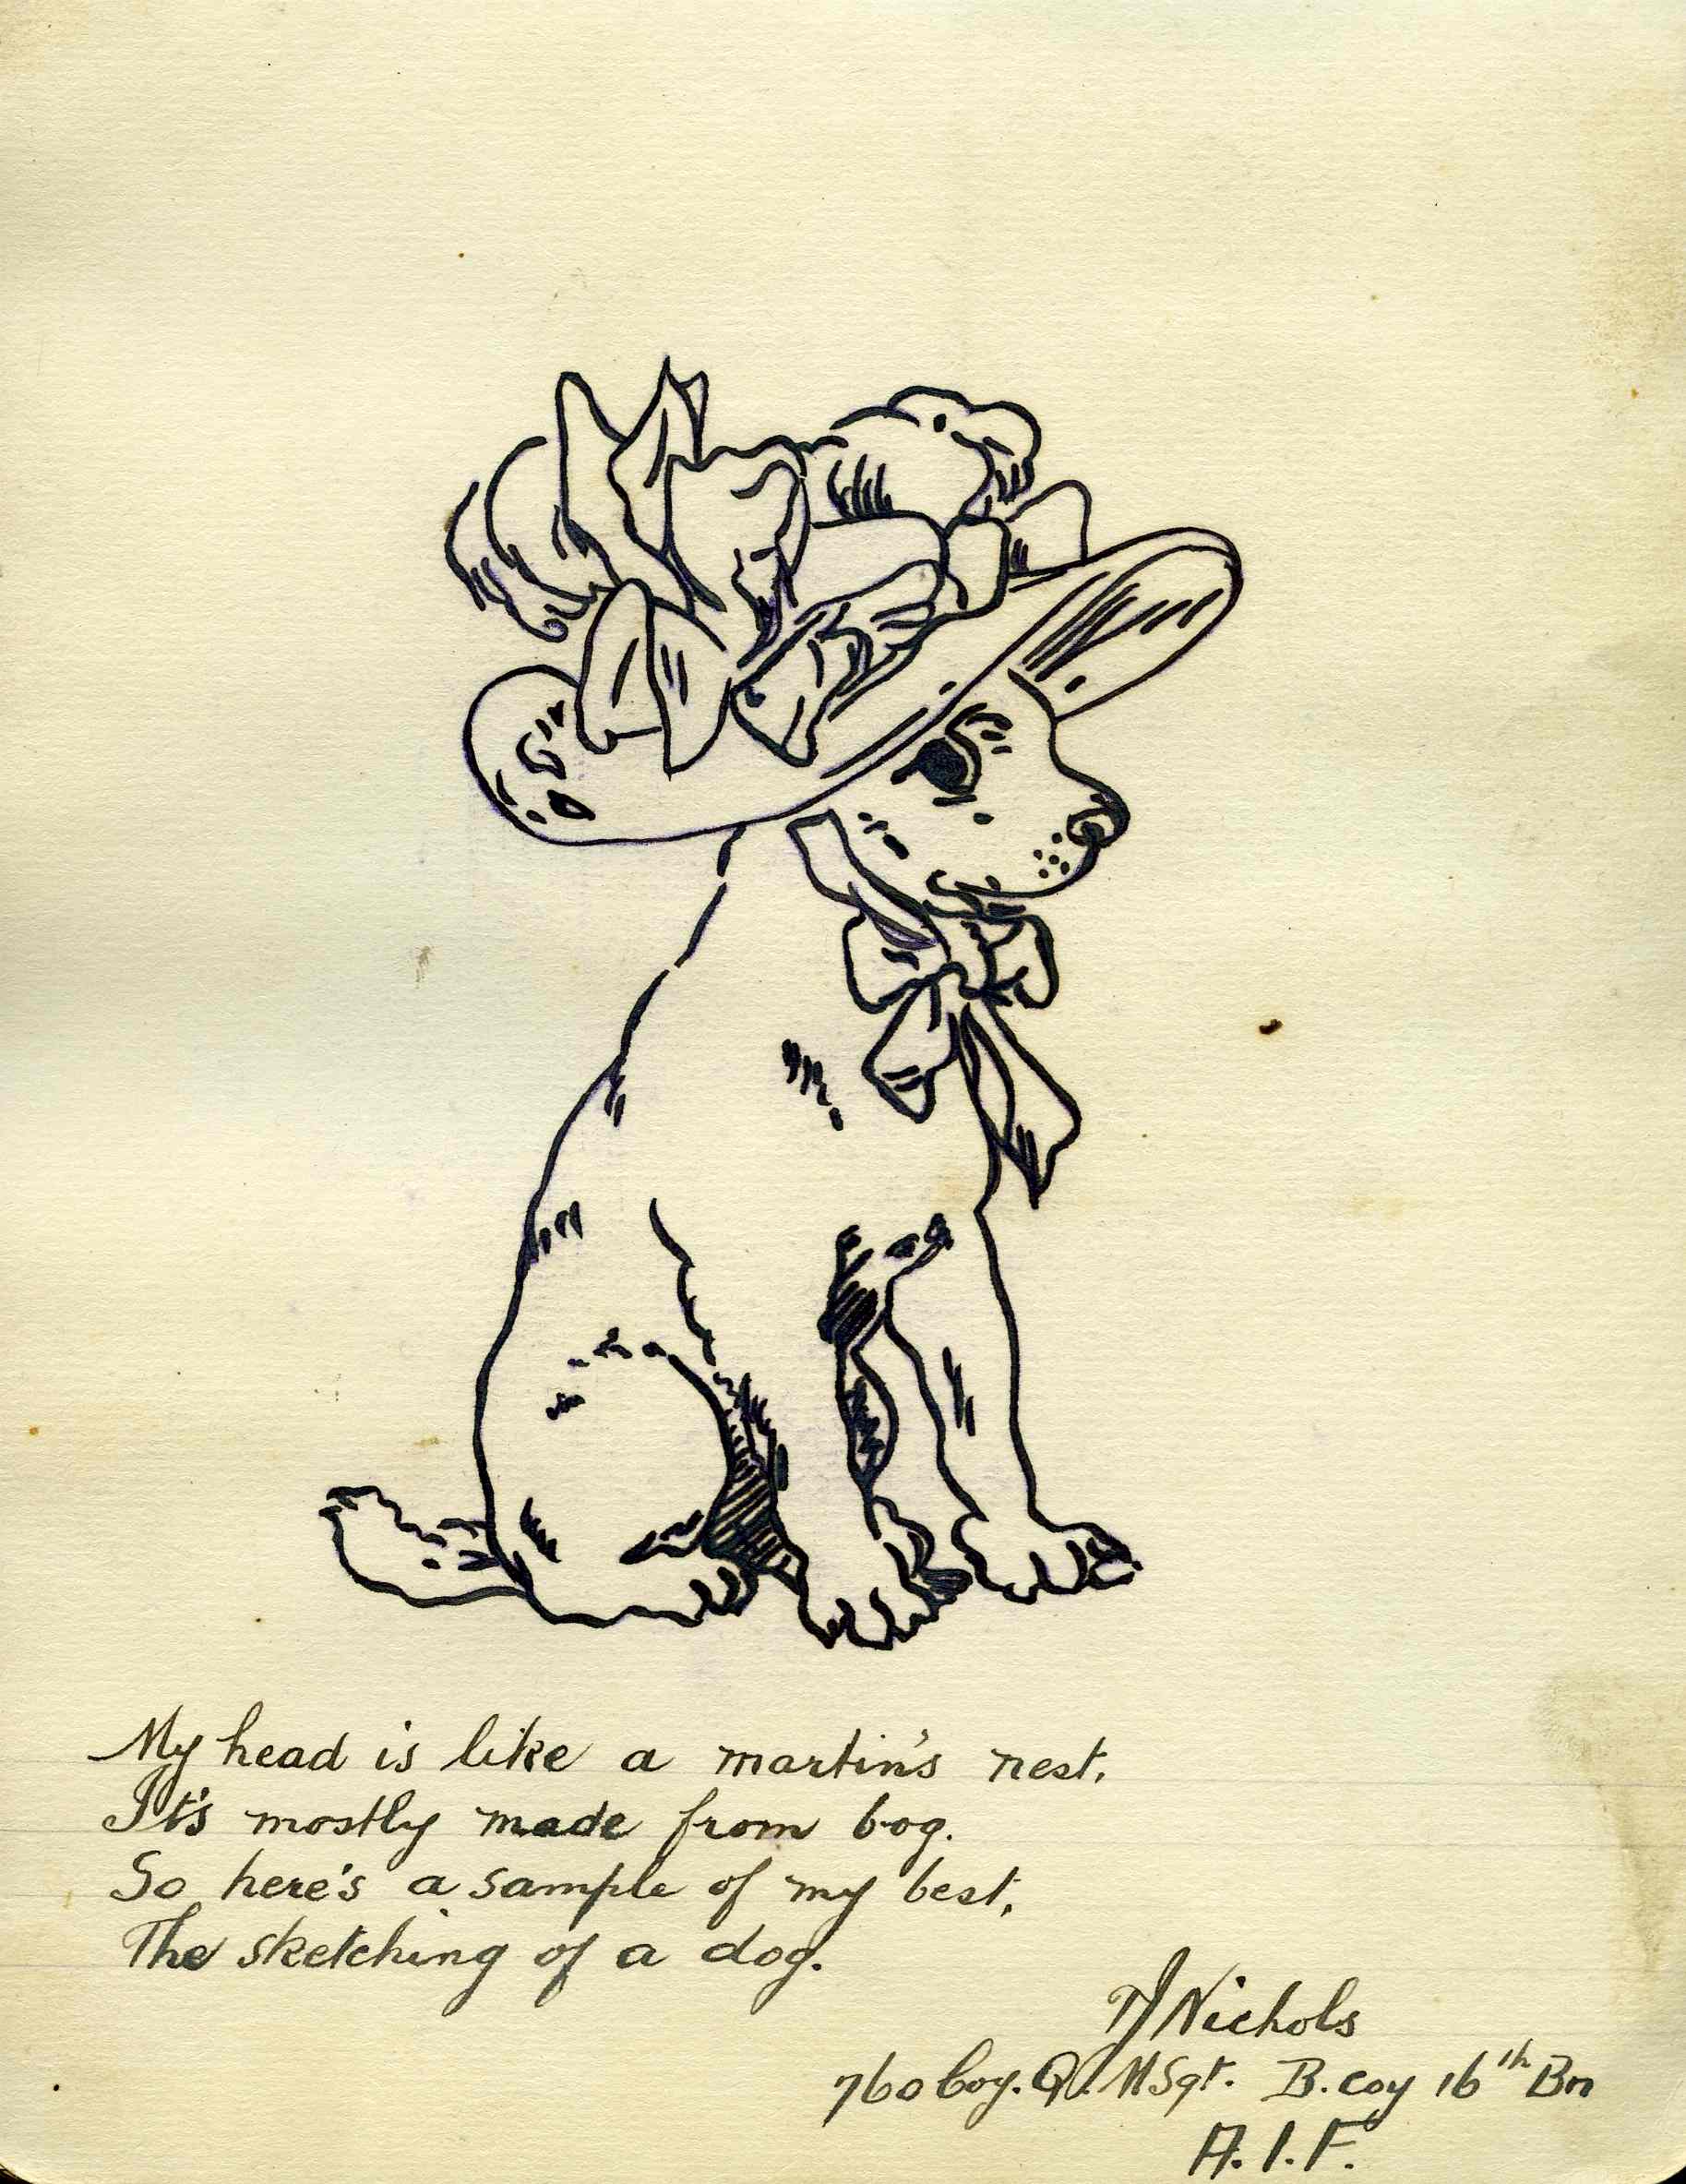 My head is like a martin's nest.
It's mostly made from bog.
So here's a sample of my best.
The sketching of a dog.
TJ Nichols
760 Coy. Q. M Sgt. B. Coy 16th Bn
A.I.F.